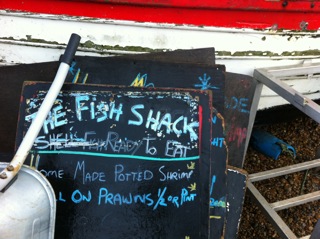 THE FISH SHACK
READY TO EAT
OME MADE POTTED SHRIMP
LL ON PRAWNS 1/2 OR PINT